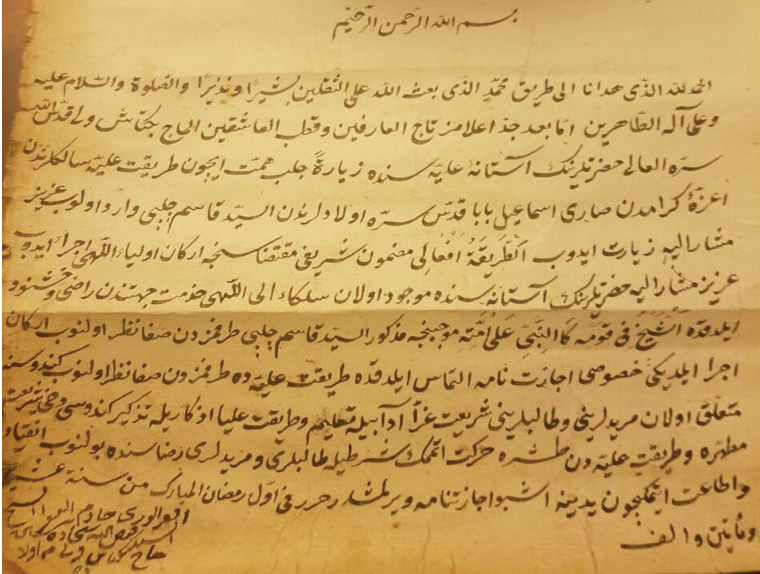 بسم الله الرحمن الرحيم
الحمد لله الذى هدانا الى طريق محمّدٍ الذى بعث الله على الثقلين بشيرًا ونذيرًا والصلوة والسّلام عليه
وعلى آله الطّاهرين امّا بعد جدّ اعلامز تاج العارفين وقطب العاشقين الحاج بكتاش ولى قدّس الله
سرّه العالى حضرتلرينك آستانهٔ عليّه سنده زيارةً جلب همّت ايچون طريقت عليّه سالكلرندن
اعزّهٔ كرامدن صارى اسماعيل بابا قدّس سرّه اولادلرندن السيّد قاسم چلبى وارد اولوب عزيز
مشار اليه زيارت ايدوب الطّريقة افعالى مضمون شريفى مقتضاسنجه اركان اولياء اللّهى اجرا ايدوب
عزيز مشار اليه حضرتلرينك آستانه سنده موجود اولان سلكاء الى اللّهى خدمت جهتندن راضى وخشنود
ايلدقده الشّيخ فى قومه كالنّبىّ على امّته موجبنجه مذكور السيّد قاسم چلبى طرفمزدن صفا نظر اولنوب اركان
اجرا ايلديكى خصوصى اجازت نامه التماس ايلدقده طريقت عليّه ده طرفمزدن صفا نظر اولنوب كندوسنه
متعلّق اولان مريدلرينى وطالبلرينى شريعت غرّا آدابيله تعليم وطريقت عليا اذكاريله تذكير كندوسى دخى شريعت
مطهّره وطريقت عليّه دن طشره حركت اتمك شرطيله طالبلرى ومريدلرى رضاسنده بولنوب انقياد
واطاعت ايتمكچون يدينه اشبو اجازتنامه ويرلمشدر حرر فى اوّل رمضان المبارك من سنة عشر
ومأتين والف
افقر الورى خادم الفقراء
السيّد فيض الله
حاج بكتاش ولى